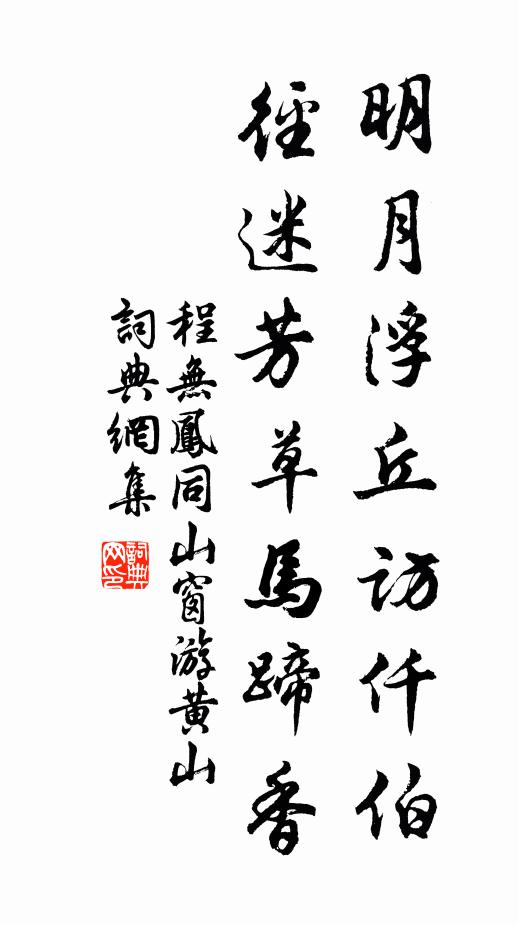 明月浮丘訪仟伯
徑迷芳草馬蹄香
程無鳳同山窗游黄山
詞典網集
詞典网印